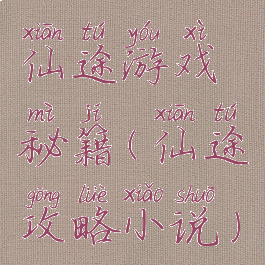 xiān tú yóu xì
仙途游戏
mì jí xiān tú
秘籍(仙途
gōng lüè xiǎo shuō
攻略小说)